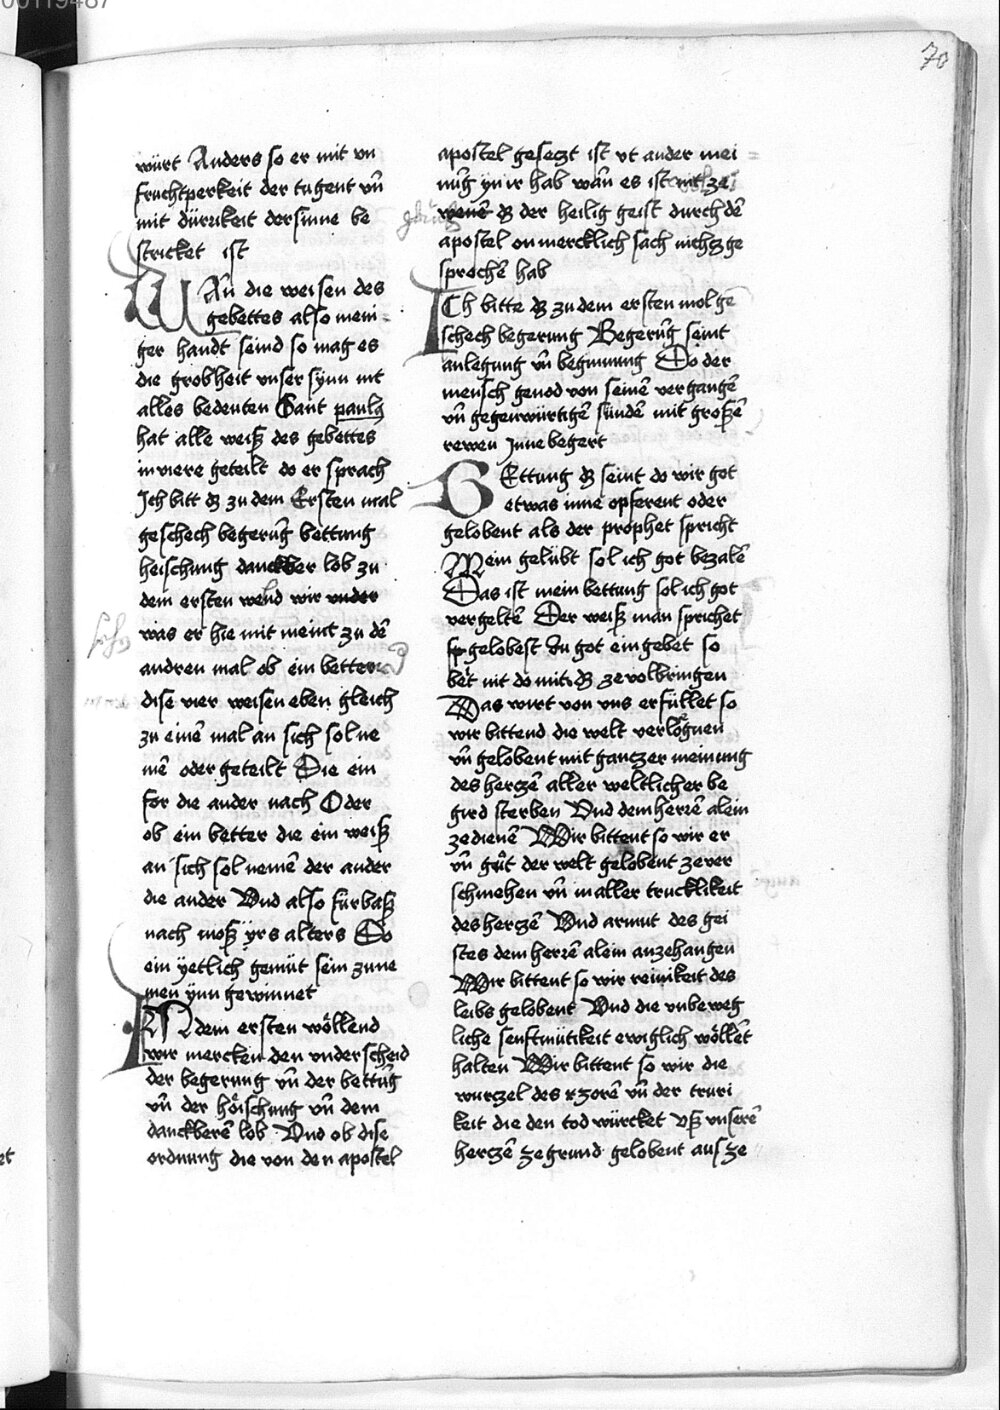 70
würt Anders so er mit vn
fruchtperkeit der tugent vn̄
mit dürrikeit der sinne be
stricket ist
WAn̄ die weisen des
gebettes also meni-
ger handt seind so mag es
die grobheit vnser synn nit
alles bedeuten Sant pauly
hat alle weiß des gebettes
in viere geteilt do er sprach
Ich bitt dz zu dem Ersten mal
geschech begerūg bettung
heischung danckber lob zu
dem ersten wend wir
was er hie mit meint zu dē
andren mal ob ein better
dise vier weisen eben gleich
zu einē mal an sich sol ne
mē oder geteilt Die ein
for die ander nach Oder
ob ein better die ein weiß
an sich sol nemē der ander
die ander Vnd also fürbaß
nach moß yrs alters So
ein yetlich gemüt sein zune
men ynn gewinnet
IN dem ersten wöllend
wir mercken den vnderscheid
der begerung vn̄ der bettūg
vn̄ der höischung vn̄ dem
danckberē lob Vnd ob dise
ordnung die von den apostel
apostel gesetzt ist vt ander mei
nūg yn ir hab wān es ist nit ze
dz der heilig geist durch dē
apostel on mercklich sach nichtz ge
sprochē hab
ICh bitte dz zu dem ersten mol ge
schech begerung Begerūg seint
anlegung vn̄ beginnung So der
mensch genod von seinē vergangē
vn̄ gegenwürtigē sündē mit großē
rewen jnne begert
BEttung dz seint do wir got
etwas inne opferent oder
gelobent als der prophet spricht
Mein gelübt sol ich got bezalē
Das ist mein bettung sol ich got
vergeltē Der weiß man sprichet
gelobest du got ein gebet so
bet nit do mit dz ze volbringen
Das wirt von vns erfüllet so
wir bittend die welt verlögnen
vn̄ gelobent mit gantzer meinung
des hertzē aller weltlicher be
gird sterben Vnd dem herrē alein
ze dienē Wir bittent so wir er
vn̄ gůt der welt gelobent ze ver
schmehen vn̄ in aller trucklikeit
des hertzē Vnd armut des gei
stes dem herrē alein anzehangen
Wir bittent so wir reinikeit des
leibs gelobent Vnd die vnbeweg
liche senftmütikeit ewiglich wöllēt
halten Wir bittent so wir die
wurtzel des tzorē vn̄ der truri
keit die den tod würcket vß vnserē
hertzē ze grund gelobent aus ze